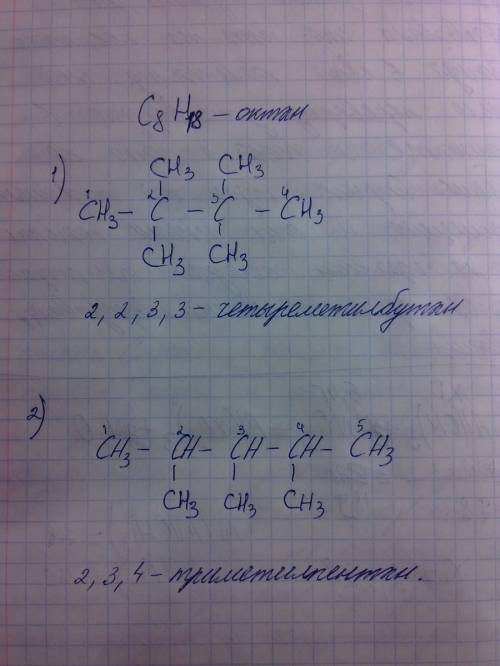 C8H18 – октан
1)
CH3 CH3
1 2 3 4
CH3 – C – C – CH3
CH3 CH3
2, 2, 3, 3 – четыреметилбутан
2)
1 2 3 4 5
CH3 – CH – CH – CH – CH3
CH3 CH3 CH3
2, 3, 4 – триметилпентан.